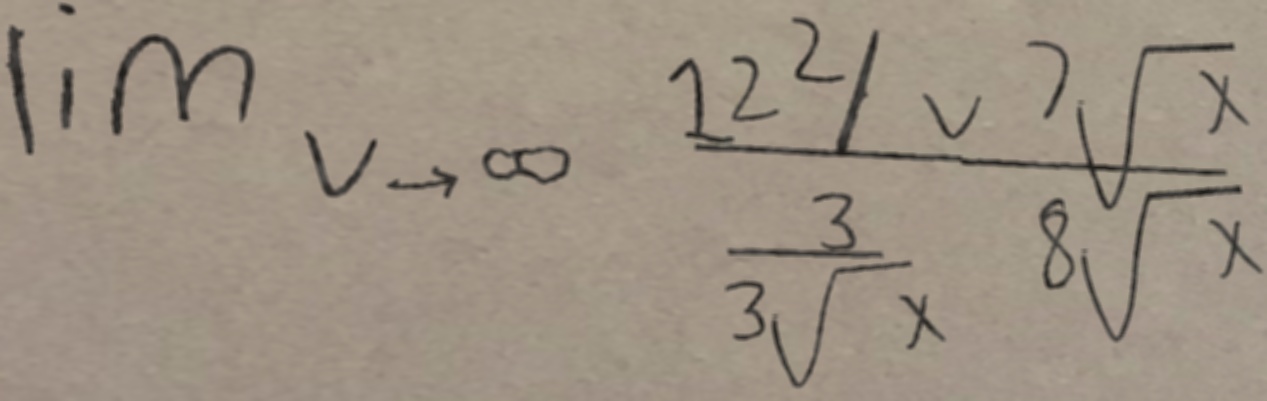 lim v→∞ \frac{12^2/ v \sqrt[7]{x}}{\frac{3}{\sqrt[3]{x}} \sqrt[8]{x}}